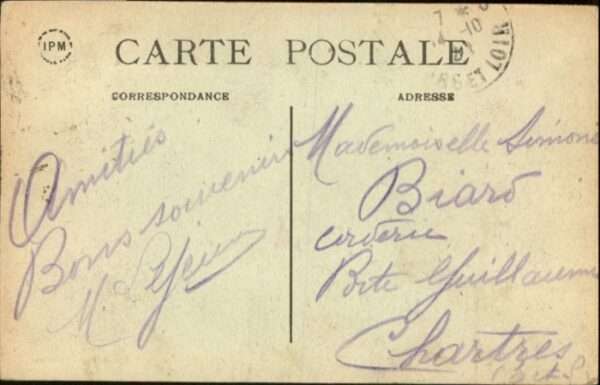 IPM
CARTE POSTALE
CORRESPONDANCE
ADRESSE
Amitiés
Bons souvenirs
M.
Mademoiselle Simone
Biard
Corderie
Porte Guillaume
Chartres